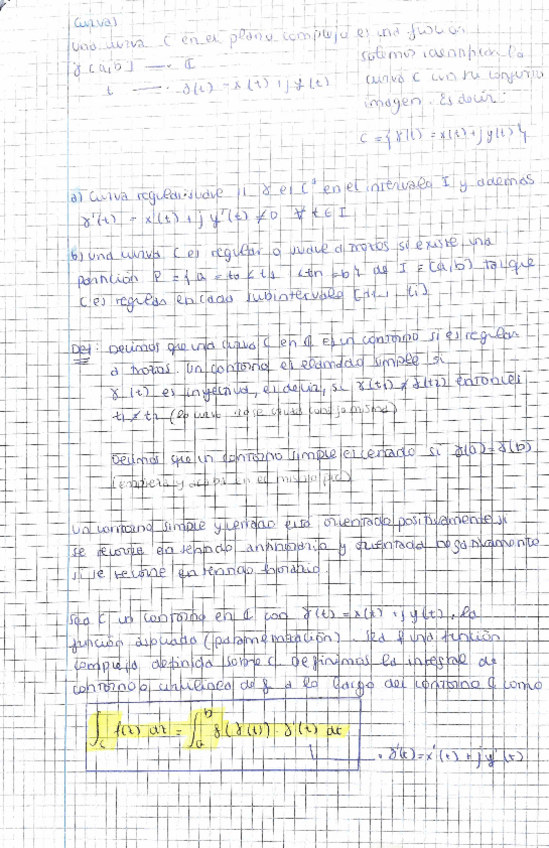 Curvas
una curva C en el plano complejo es una función
γ(a,b) → ℂ
t → γ(t) = x(t) + j y(t)
solemos identificar la
curva C con su conjunto
imagen. Es decir:
C = {γ(t) = x(t) + j y(t)}
a) Curva regular: suave si γ es C¹ en el intervalo I y además
γ'(t) = x(t) + j y'(t) ≠ 0 ∀ t ∈ I
b) una curva C es regular o suave a trozos si existe una
partición P = {a = t0 < t1 < tn = b} de I = (a,b) tal que
C es regular en cada subintervalo [ti-1, ti]
Def: Decimos que una curva C en ℂ es un contorno si es regular
a trozos. Un contorno es llamado simple si
γ(t) es inyectiva, es decir, si γ(t1) ≠ γ(t2) entonces
t1 ≠ t2 (la curva no se cruza consigo misma)
Decimos que un contorno simple es cerrado si γ(a) = γ(b)
(empieza y acaba en el mismo)
un contorno simple y cerrado está orientado positivamente si
se recorre en sentido antihorario y orientada negativamente
si se recorre en sentido horario.
Sea C un contorno en ℂ con γ(t) = x(t) + j y(t), la
función asociada (parametrización). Sea f una función
compleja definida sobre C. Definimos la integral de
contorno o curvilínea de f a lo largo del contorno C como
∫_C f(z) dz = ∫_a^b f(γ(t)) · γ'(t) dt
γ'(t) = x'(t) + j y'(t)